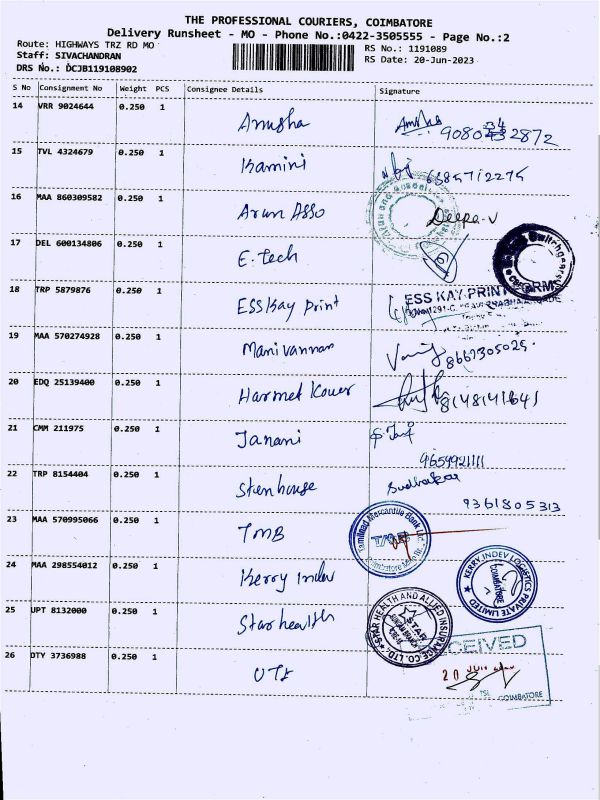 THE PROFESSIONAL COURIERS, COIMBATORE
Delivery Runsheet - MO - Phone No.:0422-3505555 - Page No.:2
Route: HIGHWAYS TRZ RD MO
RS No.: 1191089
Staff: SIVACHANDRAN
RS Date: 20-Jun-2023
DRS No.: DCJB119108902
S No Consignment No Weight PCS Consignee Details Signature
14 VRR 9024644 0.250 1 Anusha
15 TVL 4324679 0.250 1 Kamini
16 MAA 860309582 0.250 1 Arun Asso Deepa-V
17 DEL 600134806 0.250 1 E.tech
18 TRP 5879876 0.250 1 ESSkay Print ESS KAY PRINT FORMS
19 MAA 570274928 0.250 1 Manivannan 8667305025
20 EDQ 25139400 0.250 1 Harmet Kouer 8148141641
21 CMM 211975 0.250 1 Janani
9659921111
22 TRP 8154404 0.250 1 Stenhouse Sudhakar
9361805313
23 MAA 570995066 0.250 1 TMB Tamilnad Mercantile Bank Ltd. TMB
24 MAA 298554012 0.250 1 Kerry Indev KERRY INDEV LOGISTICS PRIVATE LIMITED COIMBATORE
25 UPT 8132000 0.250 1 Starhealth STAR HEALTH AND ALLIED INSURANCE CO. LTD. STAR
26 DTY 3736988 0.250 1 UTI CEIVED
20 JUN
COIMBATORE